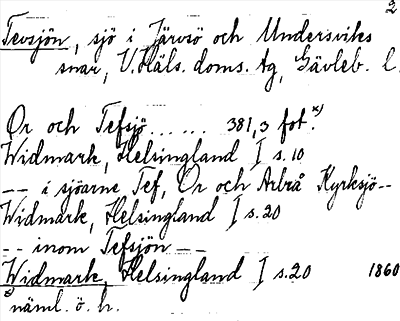 2
Tevsjön, sjö i Järvsö och Undersviks
snar, V.Häls. doms. tg, Gävleb. l.
Or och Tefsjö...... 381,3 fot.x)
Widmark, Helsingland I s.10
-- i sjöarne Tef, Or och Arbrå Kyrksjö--
Widmark, Helsingland I s.20
-- inom Tefsjön --
Widmark, Helsingland I s.20 1860
x) näml. ö. h.